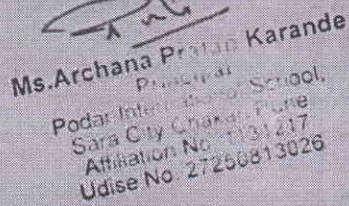 Ms.Archana Pratap Karande
Principal
Podar International School,
Sara City Chakan, Pune
Affiliation No. 1131217
Udise No. 27250813026